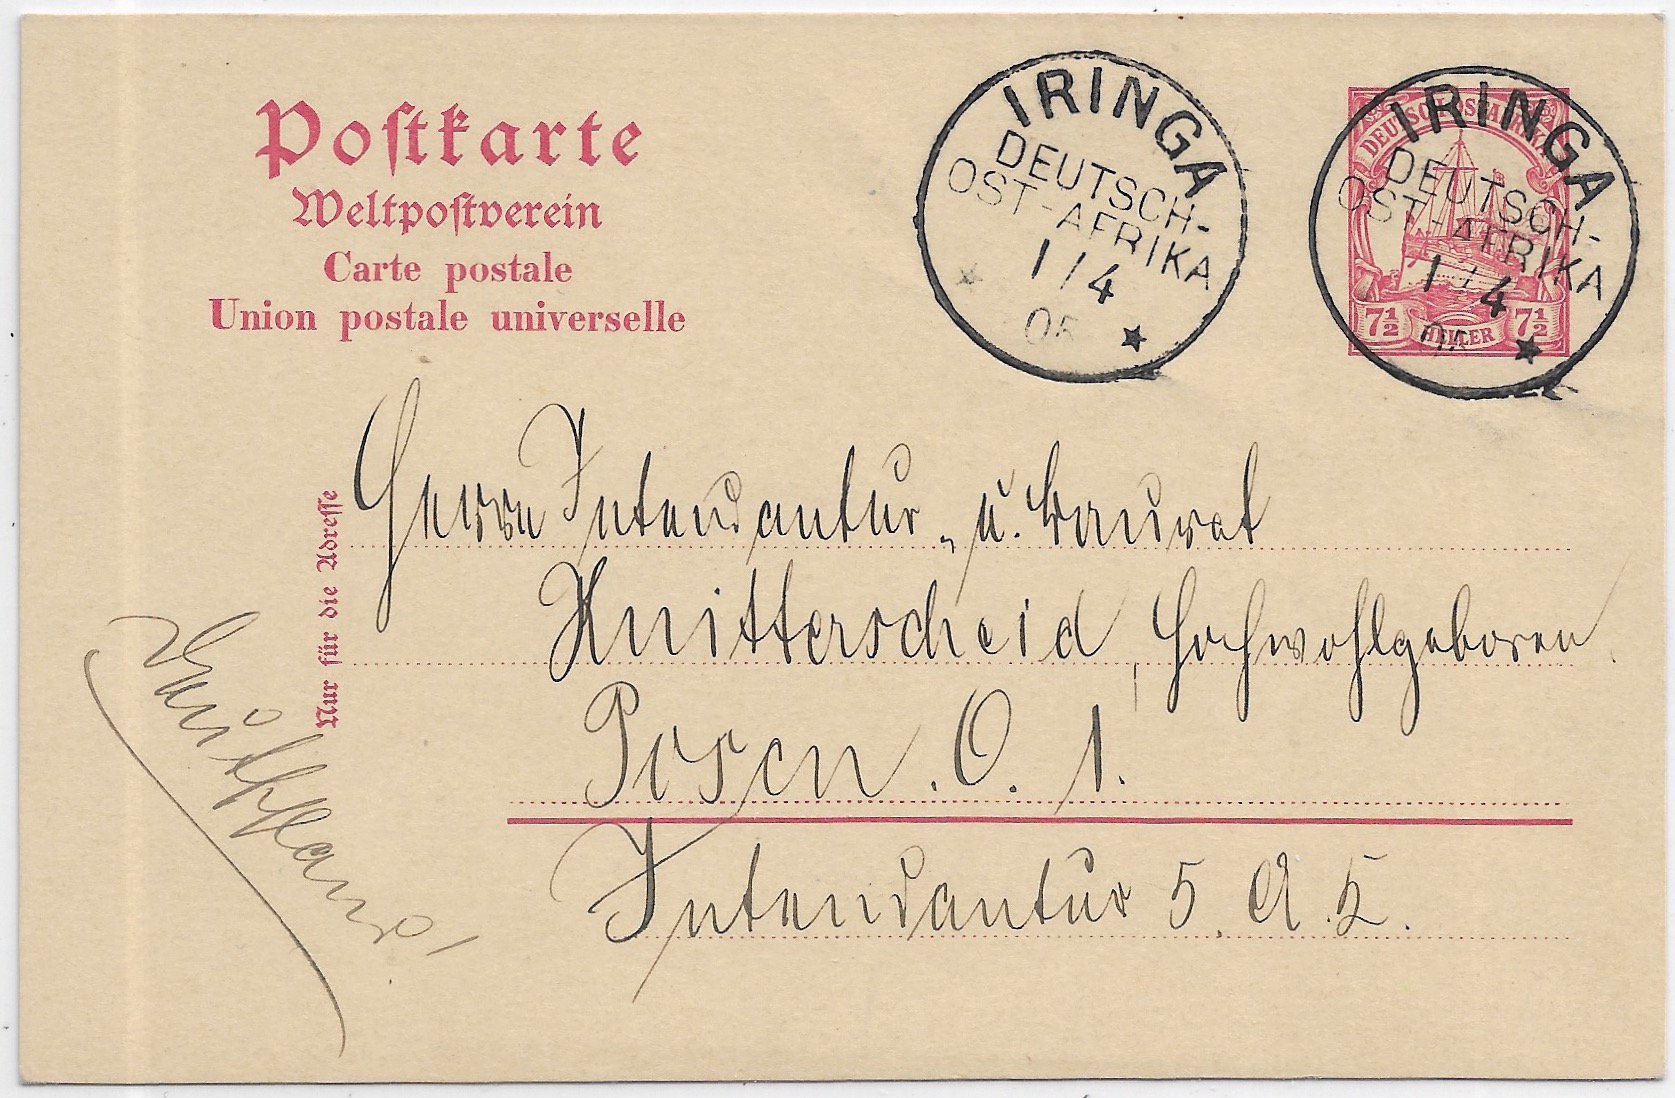 Postkarte
Weltpostverein
Carte postale
Union postale universelle
IRINGA
DEUTSCH-
OST-AFRIKA
1/4
05
DEUTSCH-OSTAFRIKA
7½ HELLER 7½
IRINGA
DEUTSCH-
OST-AFRIKA
1/4
05
Nur für die Adresse
Herrn Intendantur- u. Baurat
Knitterscheid, Hochwohlgeboren
Posen. O. 1.
Intendantur 5. A. K.
Deutschland!